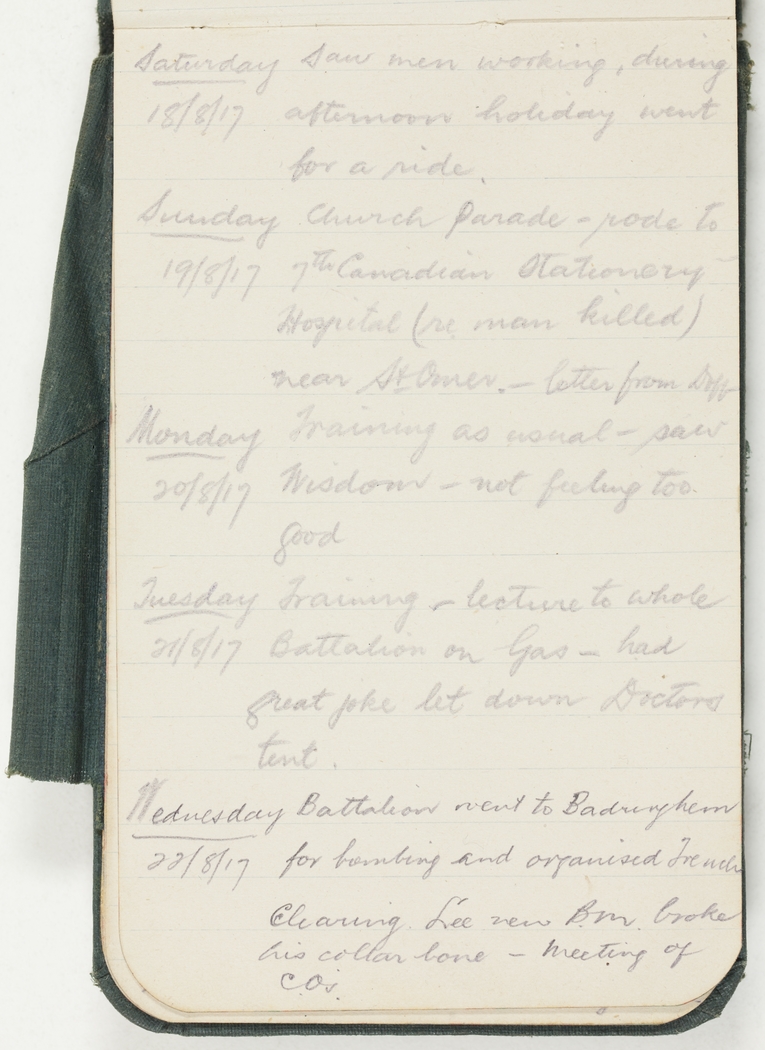 Saturday Saw men working, during
18/8/17 afternoon holiday went
for a ride.
Sunday Church Parade - rode to
19/8/17 7th Canadian Stationery
Hospital (re man killed)
near St Omer. - letter from
Monday Training as usual - saw
20/8/17 Wisdom - not feeling too
good
Tuesday Training - lecture to whole
21/8/17 Battalion on Gas - had
great joke let down Doctors
tent.
Wednesday Battalion went to
22/8/17 for bombing and organised Trench
Clearing. Lee new B.M. broke
his collar bone - Meeting of
C.Os.